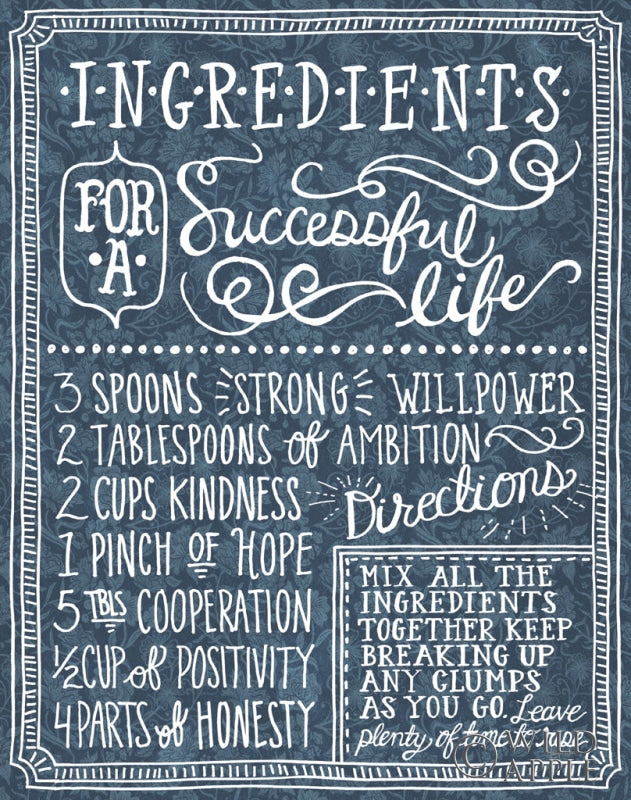 ·I·N·G·R·E·D·I·E·N·T·S·
FOR
·A·
Successful
life
3 SPOONS STRONG WILLPOWER
2 TABLESPOONS of AMBITION
2 CUPS KINDNESS
1 PINCH OF HOPE
5 TBLS COOPERATION
½ CUP of POSITIVITY
4 PARTS of HONESTY
Directions
MIX ALL THE
INGREDIENTS
TOGETHER KEEP
BREAKING UP
ANY CLUMPS
AS YOU GO. Leave
plenty of time to rise
© WILD
APPLE